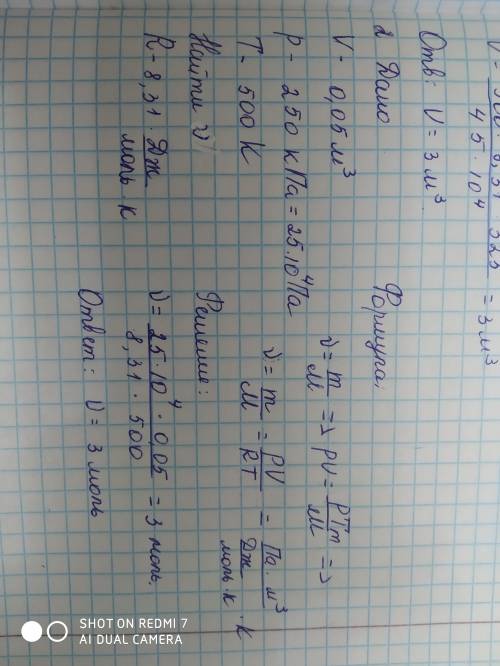 45 · 10⁴ = 3 м³
Отв: V = 3 м³
2 Дано
V - 0,05 м³
P - 250 кПа = 25·10⁴ Па
T - 500 К
Найти ν
R - 8,31 · Дж / моль К
Формула:
ν = m/M => PV = PTm/M =>
ν = m/M = PV/RT = Па · м³ / Дж / моль·К · К
Решение:
ν = 25·10⁴ · 0,05 / 8,31 · 500 = 3 моль.
Ответ: ν = 3 моль
SHOT ON REDMI 7
AI DUAL CAMERA